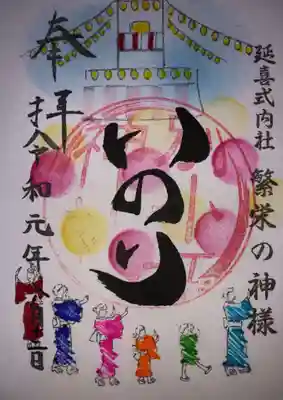 延喜式内社
繁栄の神様
いのり
奉拝
令和元年八月